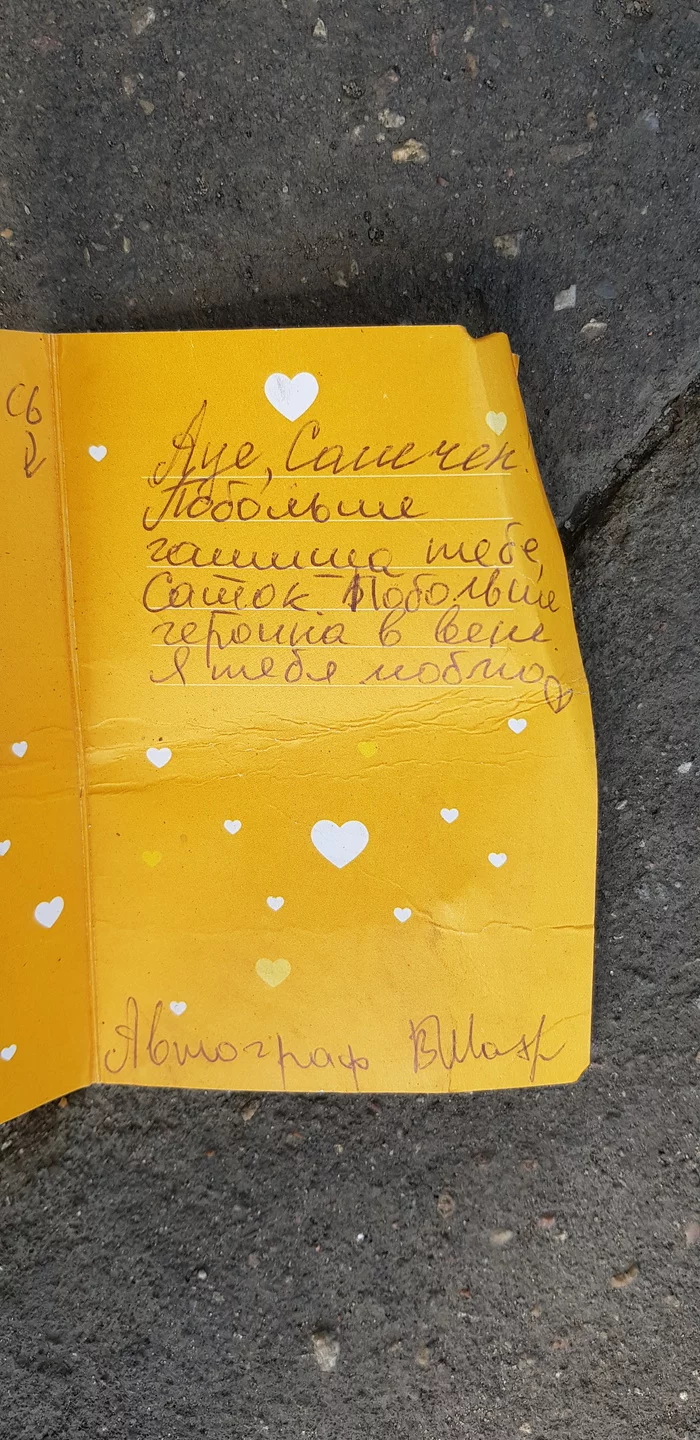 сь
Ауе, Сашечек
Побольше
гашиша тебе,
Саток Побольше
героина в вене
я тебя люблю
Автограф